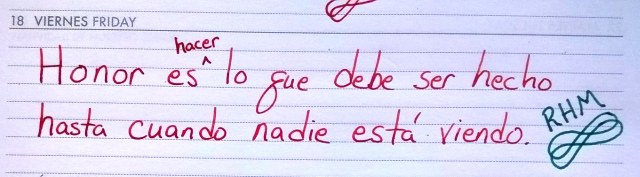 18 VIERNES FRIDAY
Honor es hacer lo que debe ser hecho
hasta cuando nadie está viendo.
RHM